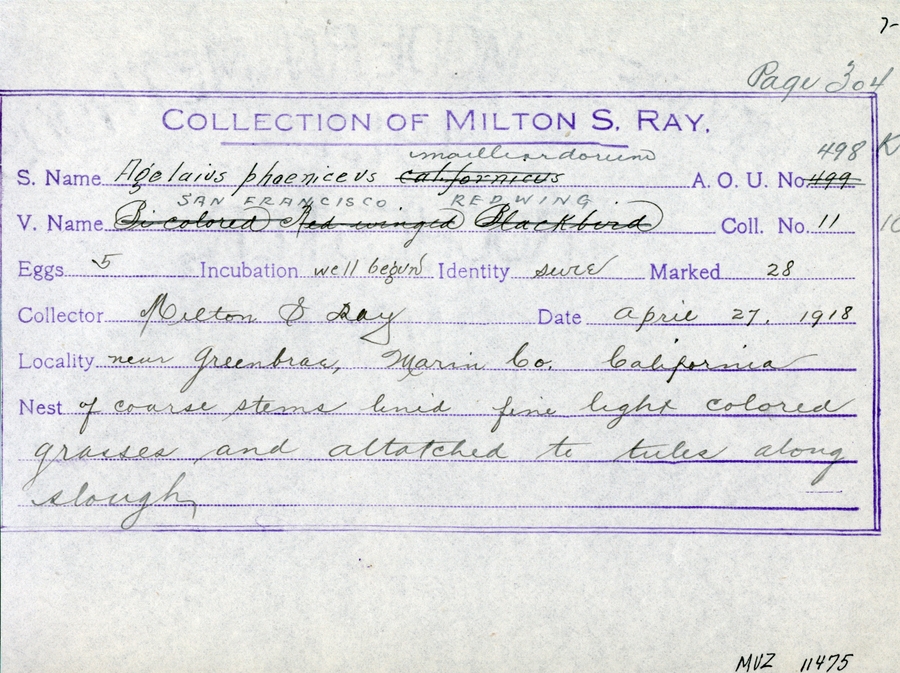 7-
Page 304
COLLECTION OF MILTON S. RAY.
mailliardorum
498 K
S. Name Agelaius phoeniceus californicus A. O. U. No. 499
SAN FRANCISCO REDWING
V. Name Bi-colored Red-winged Blackbird Coll. No. 11
Eggs 5 Incubation well begun Identity sure Marked 28
Collector Milton S Ray Date April 27, 1918
Locality near Greenbrae, Marin Co. California
Nest of coarse stems linid fine light colored
grasses and attatched to tules along
slough
MVZ 11475